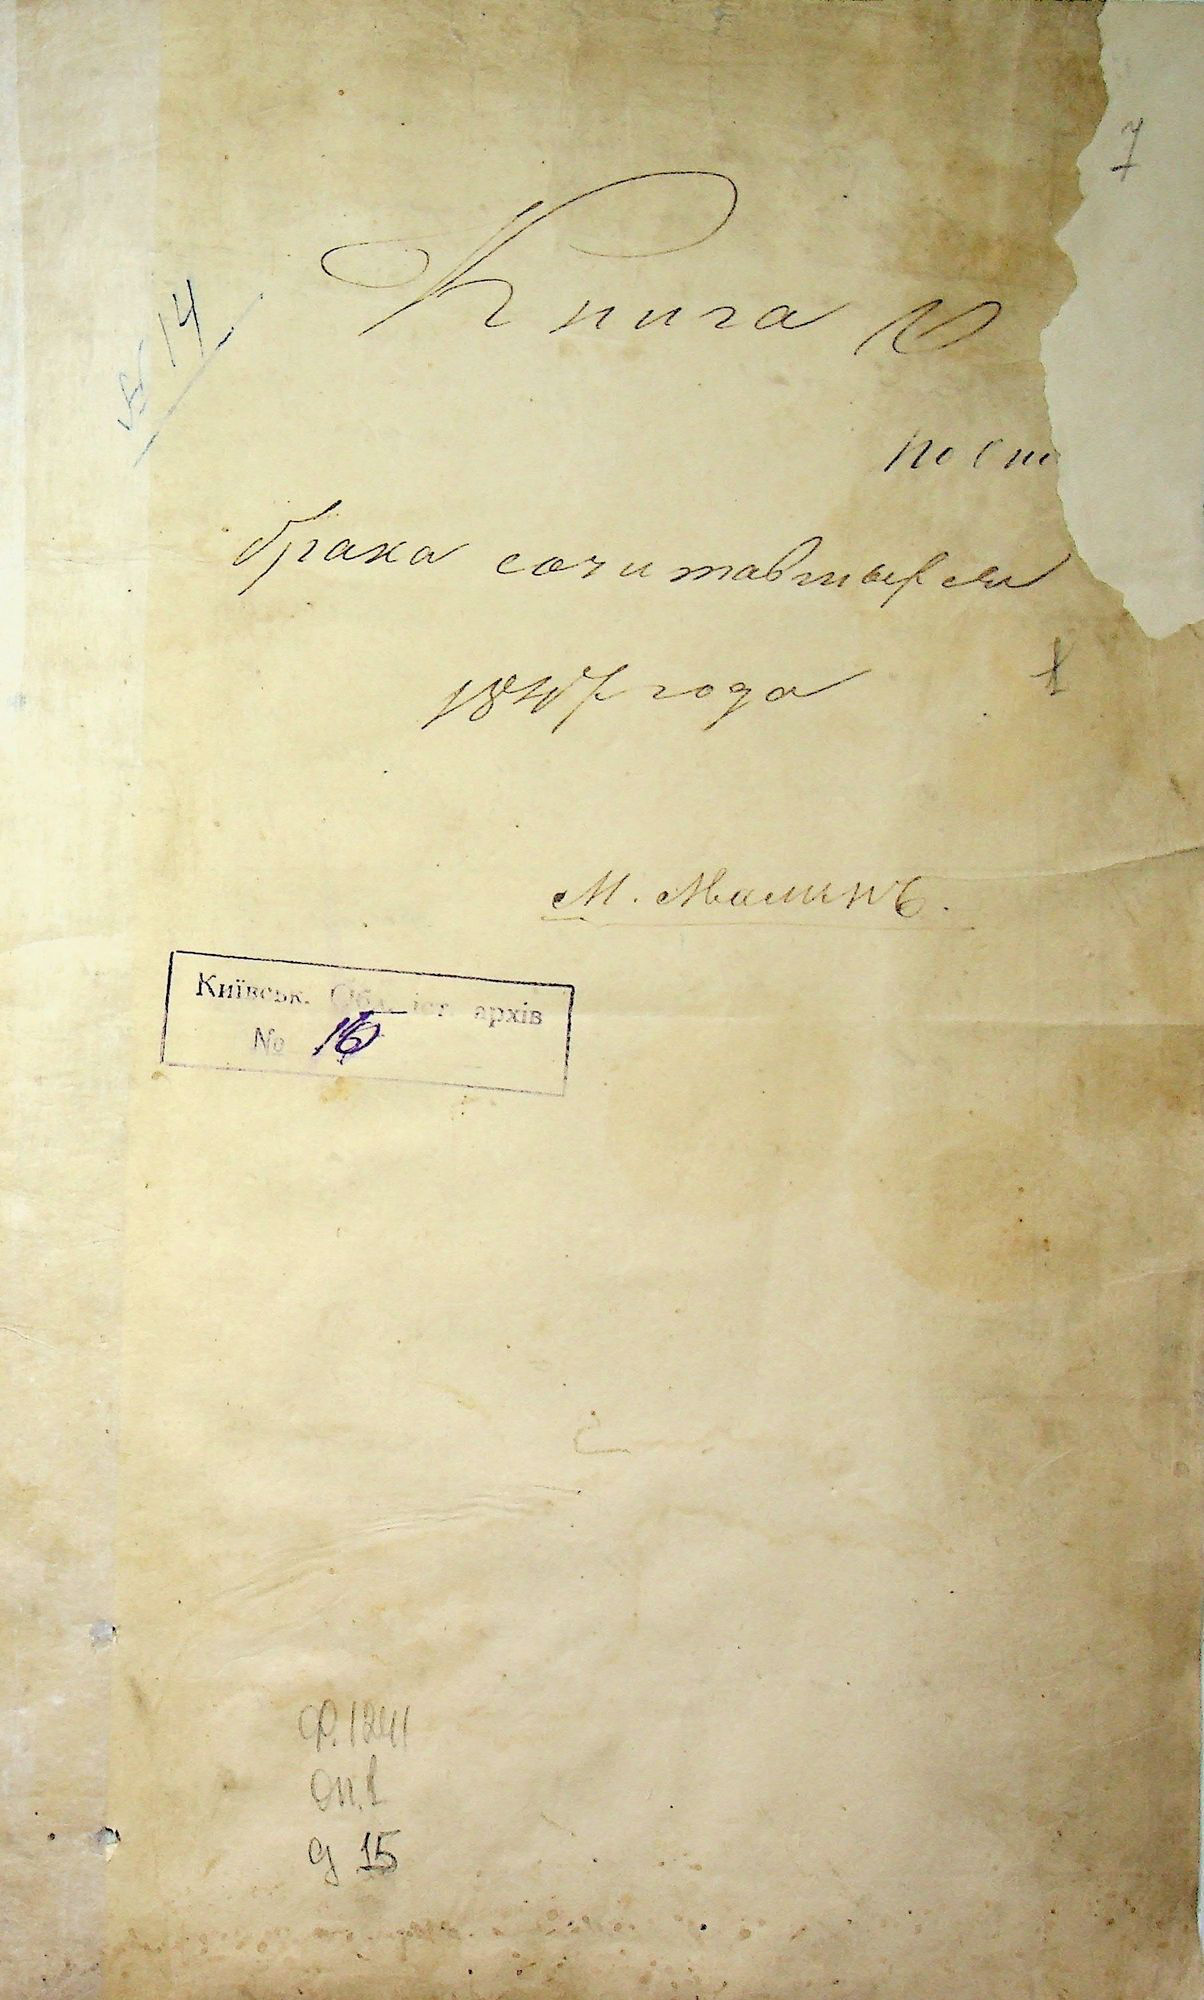 7
№ 14
Книга о
по сп
брака сочитавшихся
1847 года
М. Малинъ.
Київськ. Обл. іст. архів
№ 16
Ф. 1241
оп. 1
д 15